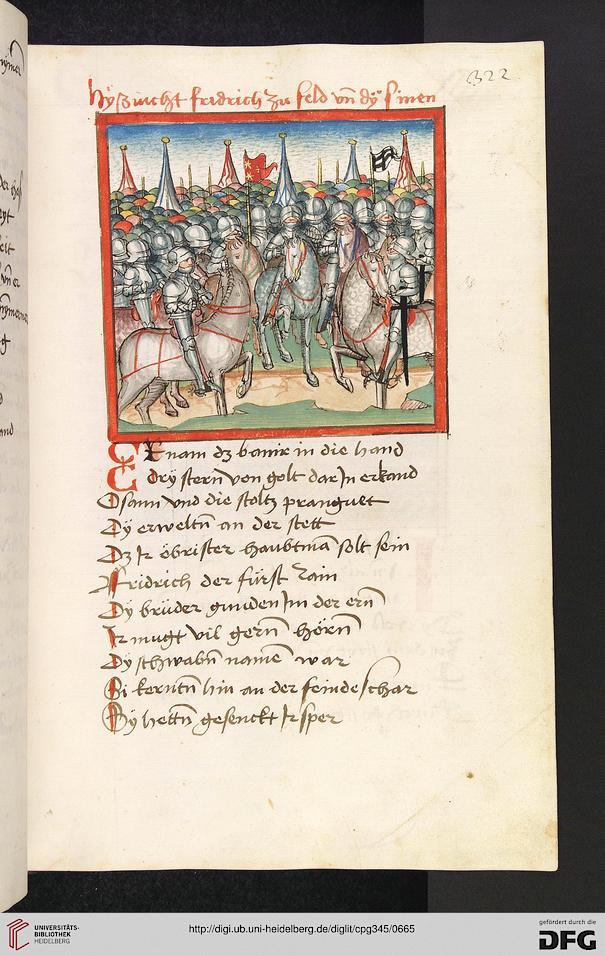 322
Hÿ zucht fridrich zu feld vñ dÿ sinen
Er nam dz banir in die hand
Dry stern von golt dar Jn erkand
Osann vnd die stoltz pranguet
Dÿ erweltñ an der stett
Dz Jr öbrister haubtmā solt sein
Fridrich der fürst rain
Dÿ brüder Jm der ern̄
Jr mugt vil gern̄ hörn̄
Dÿ schwabn̄ namē war
Si kertn̄ hin an der feinde schar
Sÿ hettn̄ gesenckt Jr sper
UNIVERSITÄTS-
BIBLIOTHEK
HEIDELBERG
http://digi.ub.uni-heidelberg.de/diglit/cpg345/0665
gefördert durch die
DFG